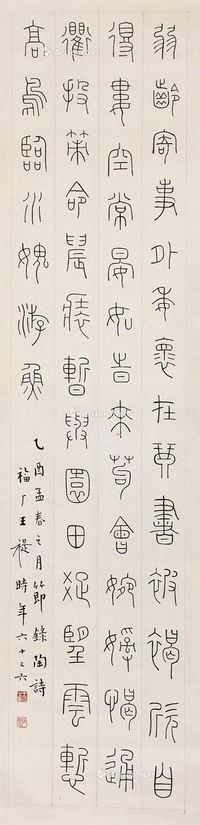 弱齡寄事外委懷在琴書被褐欣自
得婁空常晏如旹來苟會婉孌愒通
衢投策命晨裝暫與園田疏望雲慙
高鳥臨水媿游魚
乙酉孟春之月節錄陶詩
福厂王禔時年六十又六